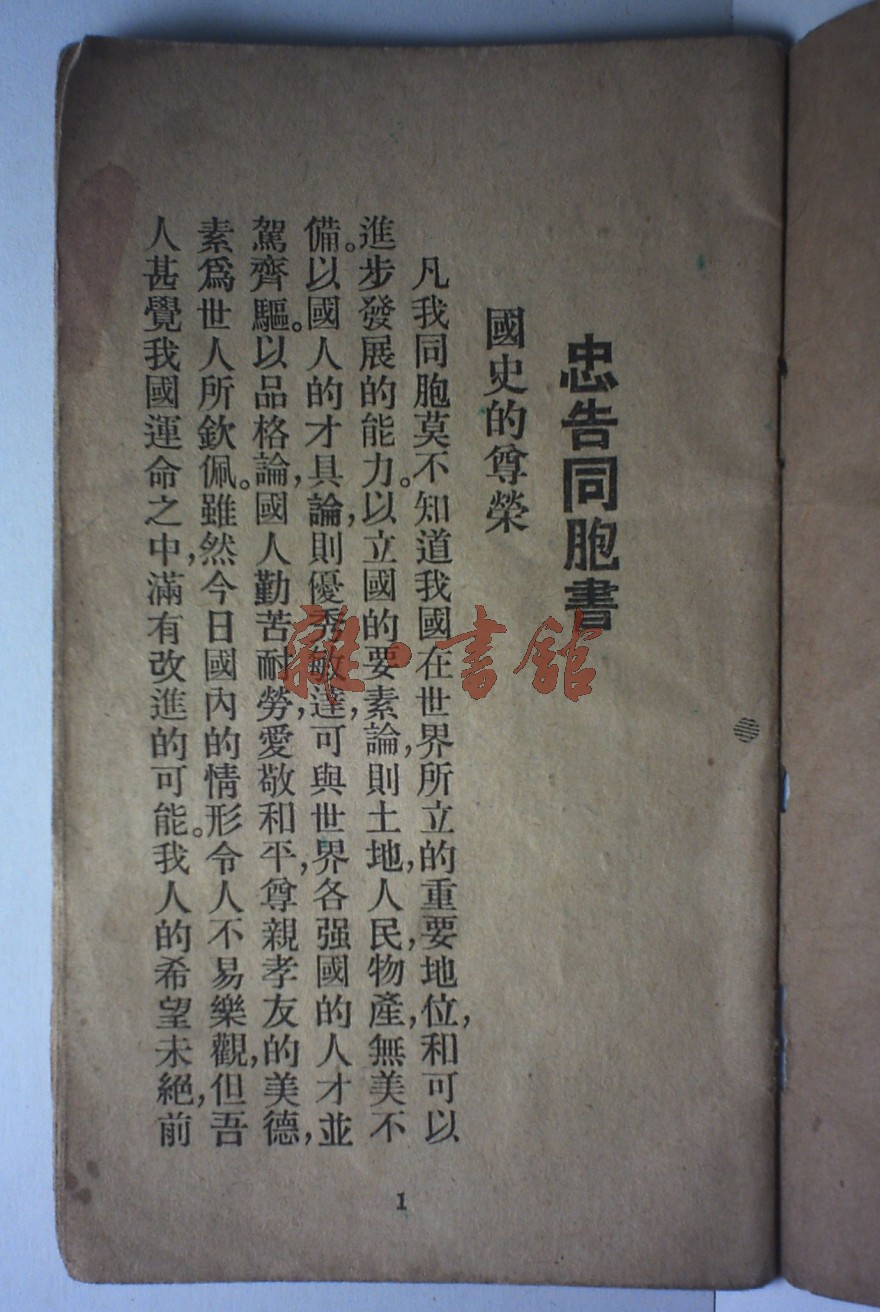 忠告同胞書
國史的尊榮
凡我同胞莫不知道我國在世界所立的重要地位,和可以
進步發展的能力。以立國的要素論,則土地,人民,物產,無美不
備。以國人的才具論,則優秀敏達,可與世界各强國的人才並
駕齊驅。以品格論,國人勤苦耐勞,愛敬和平,尊親孝友的美德,
素爲世人所欽佩。雖然今日國內的情形令人不易樂觀,但吾
人甚覺我國運命之中,滿有改進的可能。我人的希望未絕,前
1
雜·書館